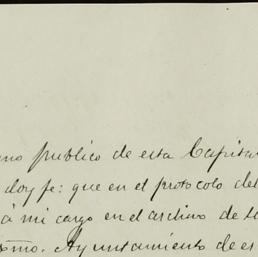 ano publico de esta Capita
doy fe: que en el protocolo del
á mi cargo en el archivo de
Ayuntamiento de es